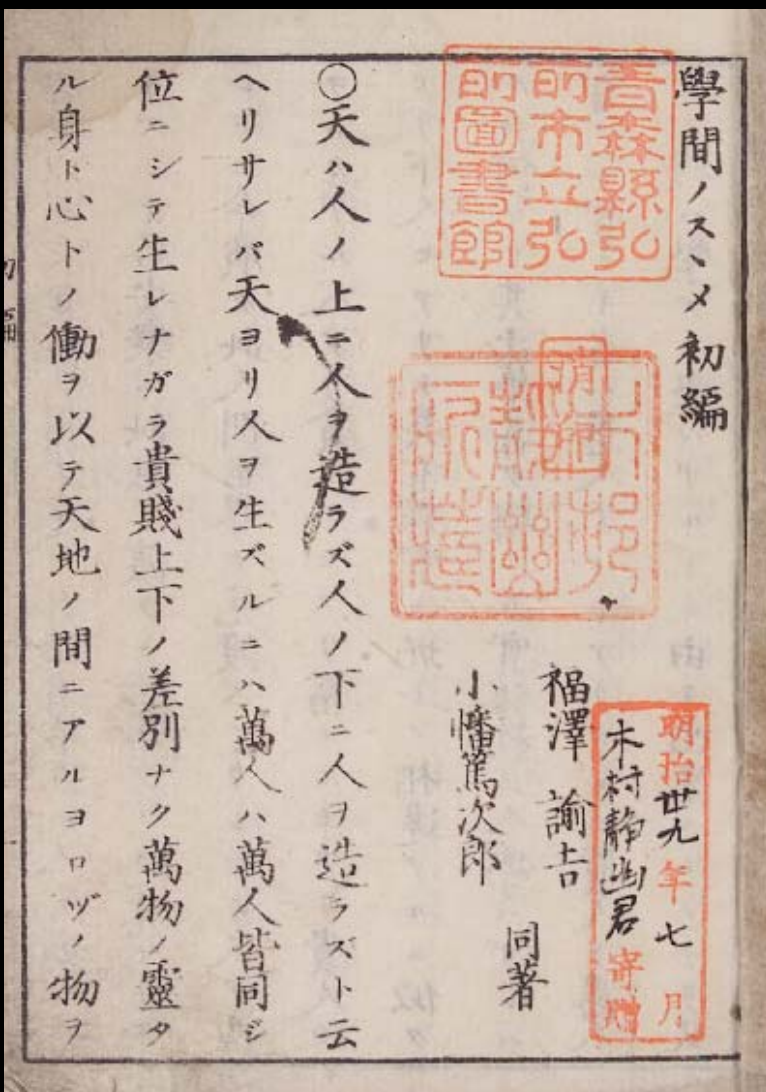 學問ノスヽメ 初編
青森縣弘
前市立弘
前圖書館
明治卅九年七月
木村靜幽君寄贈
福澤諭吉
小幡篤次郎
同著
○天ハ人ノ上ニ人ヲ造ラズ人ノ下ニ人ヲ造ラズト云
ヘリサレバ天ヨリ人ヲ生ズルニハ萬人ハ萬人皆同ジ
位ニシテ生レナガラ貴賤上下ノ差別ナク萬物ノ靈タ
ル身ト心トノ働ヲ以テ天地ノ間ニアルヨロヅノ物ヲ